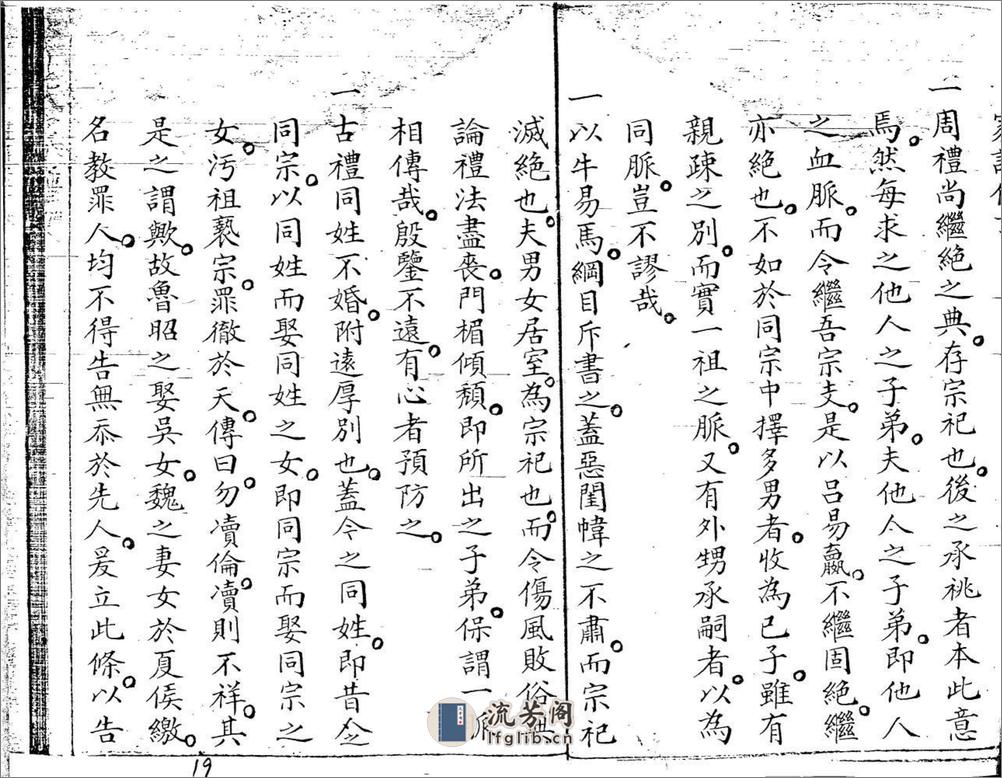 一周禮尚繼絕之典存宗祀也後之承祧者本此意
焉然每求之他人之子弟夫他人之子弟即他人
之血脈而令繼吾宗支是以吕易嬴不繼固絕繼
亦絕也不如於同宗中擇多男者收為已子雖有
親疎之别而實一祖之脈又有外甥承嗣者以為
同脈豈不謬哉
一以牛易馬綱目斥書之蓋惡閨幃之不肅而宗祀
滅絕也夫男女居室為宗祀也而令傷風敗俗
論禮法盡喪門楣傾頽即所出之子弟保謂一脈
相傳哉殷鑒不遠有心者預防之
一古禮同姓不婚附遠厚别也蓋今之同姓即昔之
同宗以同姓而娶同姓之女即同宗而娶同宗之
女汚祖褻宗罪徹於天傳曰勿凟倫凟則不祥其
是之謂歟故魯昭之娶吳女魏之妻女於夏侯繳
名教罪人均不得告無忝於先人爰立此條以告
19
流芳阁
lfglib.cn